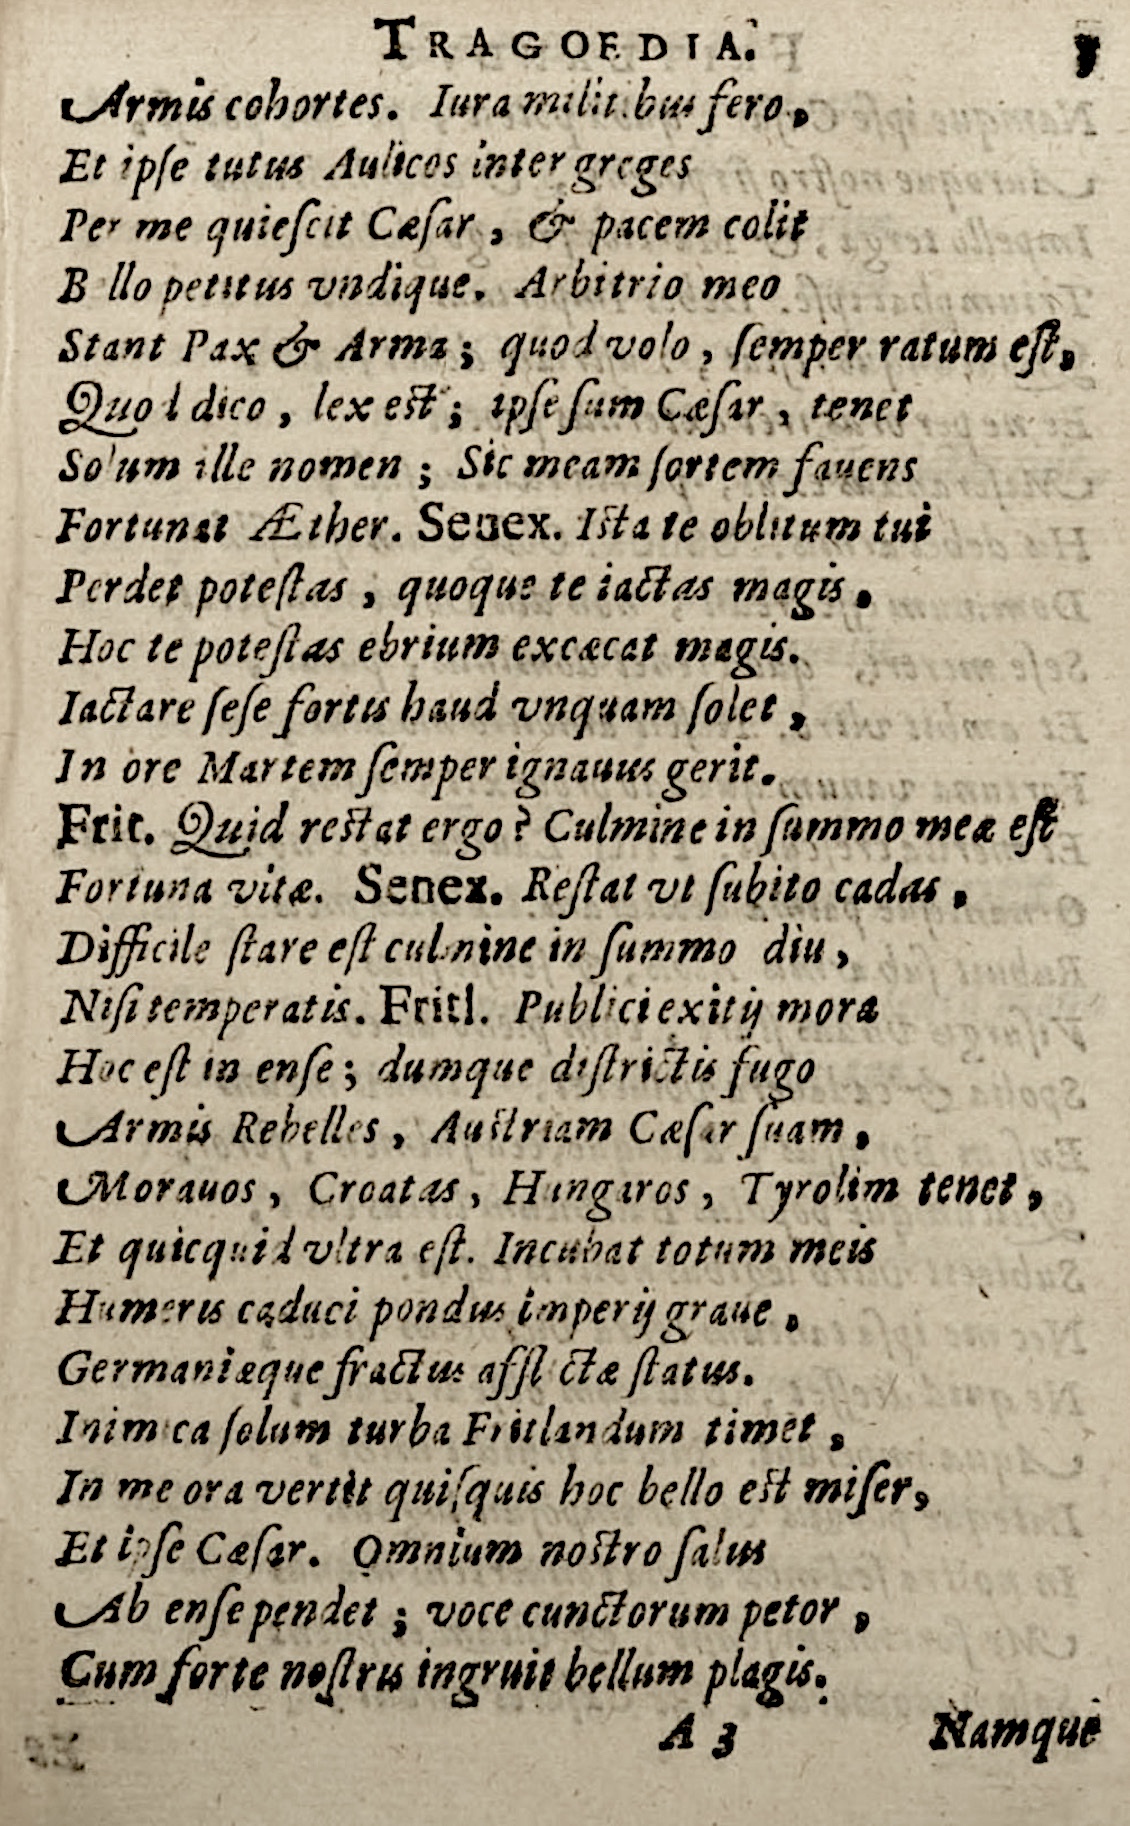 TRAGOEDIA.
Armis cohortes. Iura militibus fero,
Et ipſe tutus Aulicos inter greges
Per me quieſcit Cæſar, & pacem colit
Bello petitus vndique. Arbitrio meo
Stant Pax & Arma; quod volo, ſemper ratum eſt,
Quod dico, lex eſt; ipſe ſum Cæſar, tenet
Solum ille nomen; Sic meam ſortem fauens
Fortunat Æther. Senex. Iſta te oblitum tui
Perdet poteſtas, quoque te iactas magis,
Hoc te poteſtas ebrium excæcat magis.
Iactare ſeſe fortis haud vnquam ſolet,
In ore Martem ſemper ignauus gerit.
Frit. Quid reſtat ergo? Culmine in ſummo meæ eſt
Fortuna vitæ. Senex. Reſtat vt ſubito cadas,
Difficile ſtare eſt culmine in ſummo diu,
Niſi temperatis. Fritl. Publici exitij mora
Hoc eſt in enſe; dumque diſtrictis fugo
Armis Rebelles, Auſtriam Cæſar ſuam,
Morauos, Croatas, Hungaros, Tyrolim tenet,
Et quicquid vltra eſt. Incubat totum meis
Humeris caduci pondus imperij graue,
Germaniæque fractus afflictæ ſtatus.
Inimica ſolum turba Fritlandum timet,
In me ora vertit quiſquis hoc bello eſt miſer,
Et ipſe Cæſar. Omnium noſtro ſalus
Ab enſe pendet; voce cunctorum petor,
Cum forte noſtris ingruit bellum plagis.
A 3 Namque